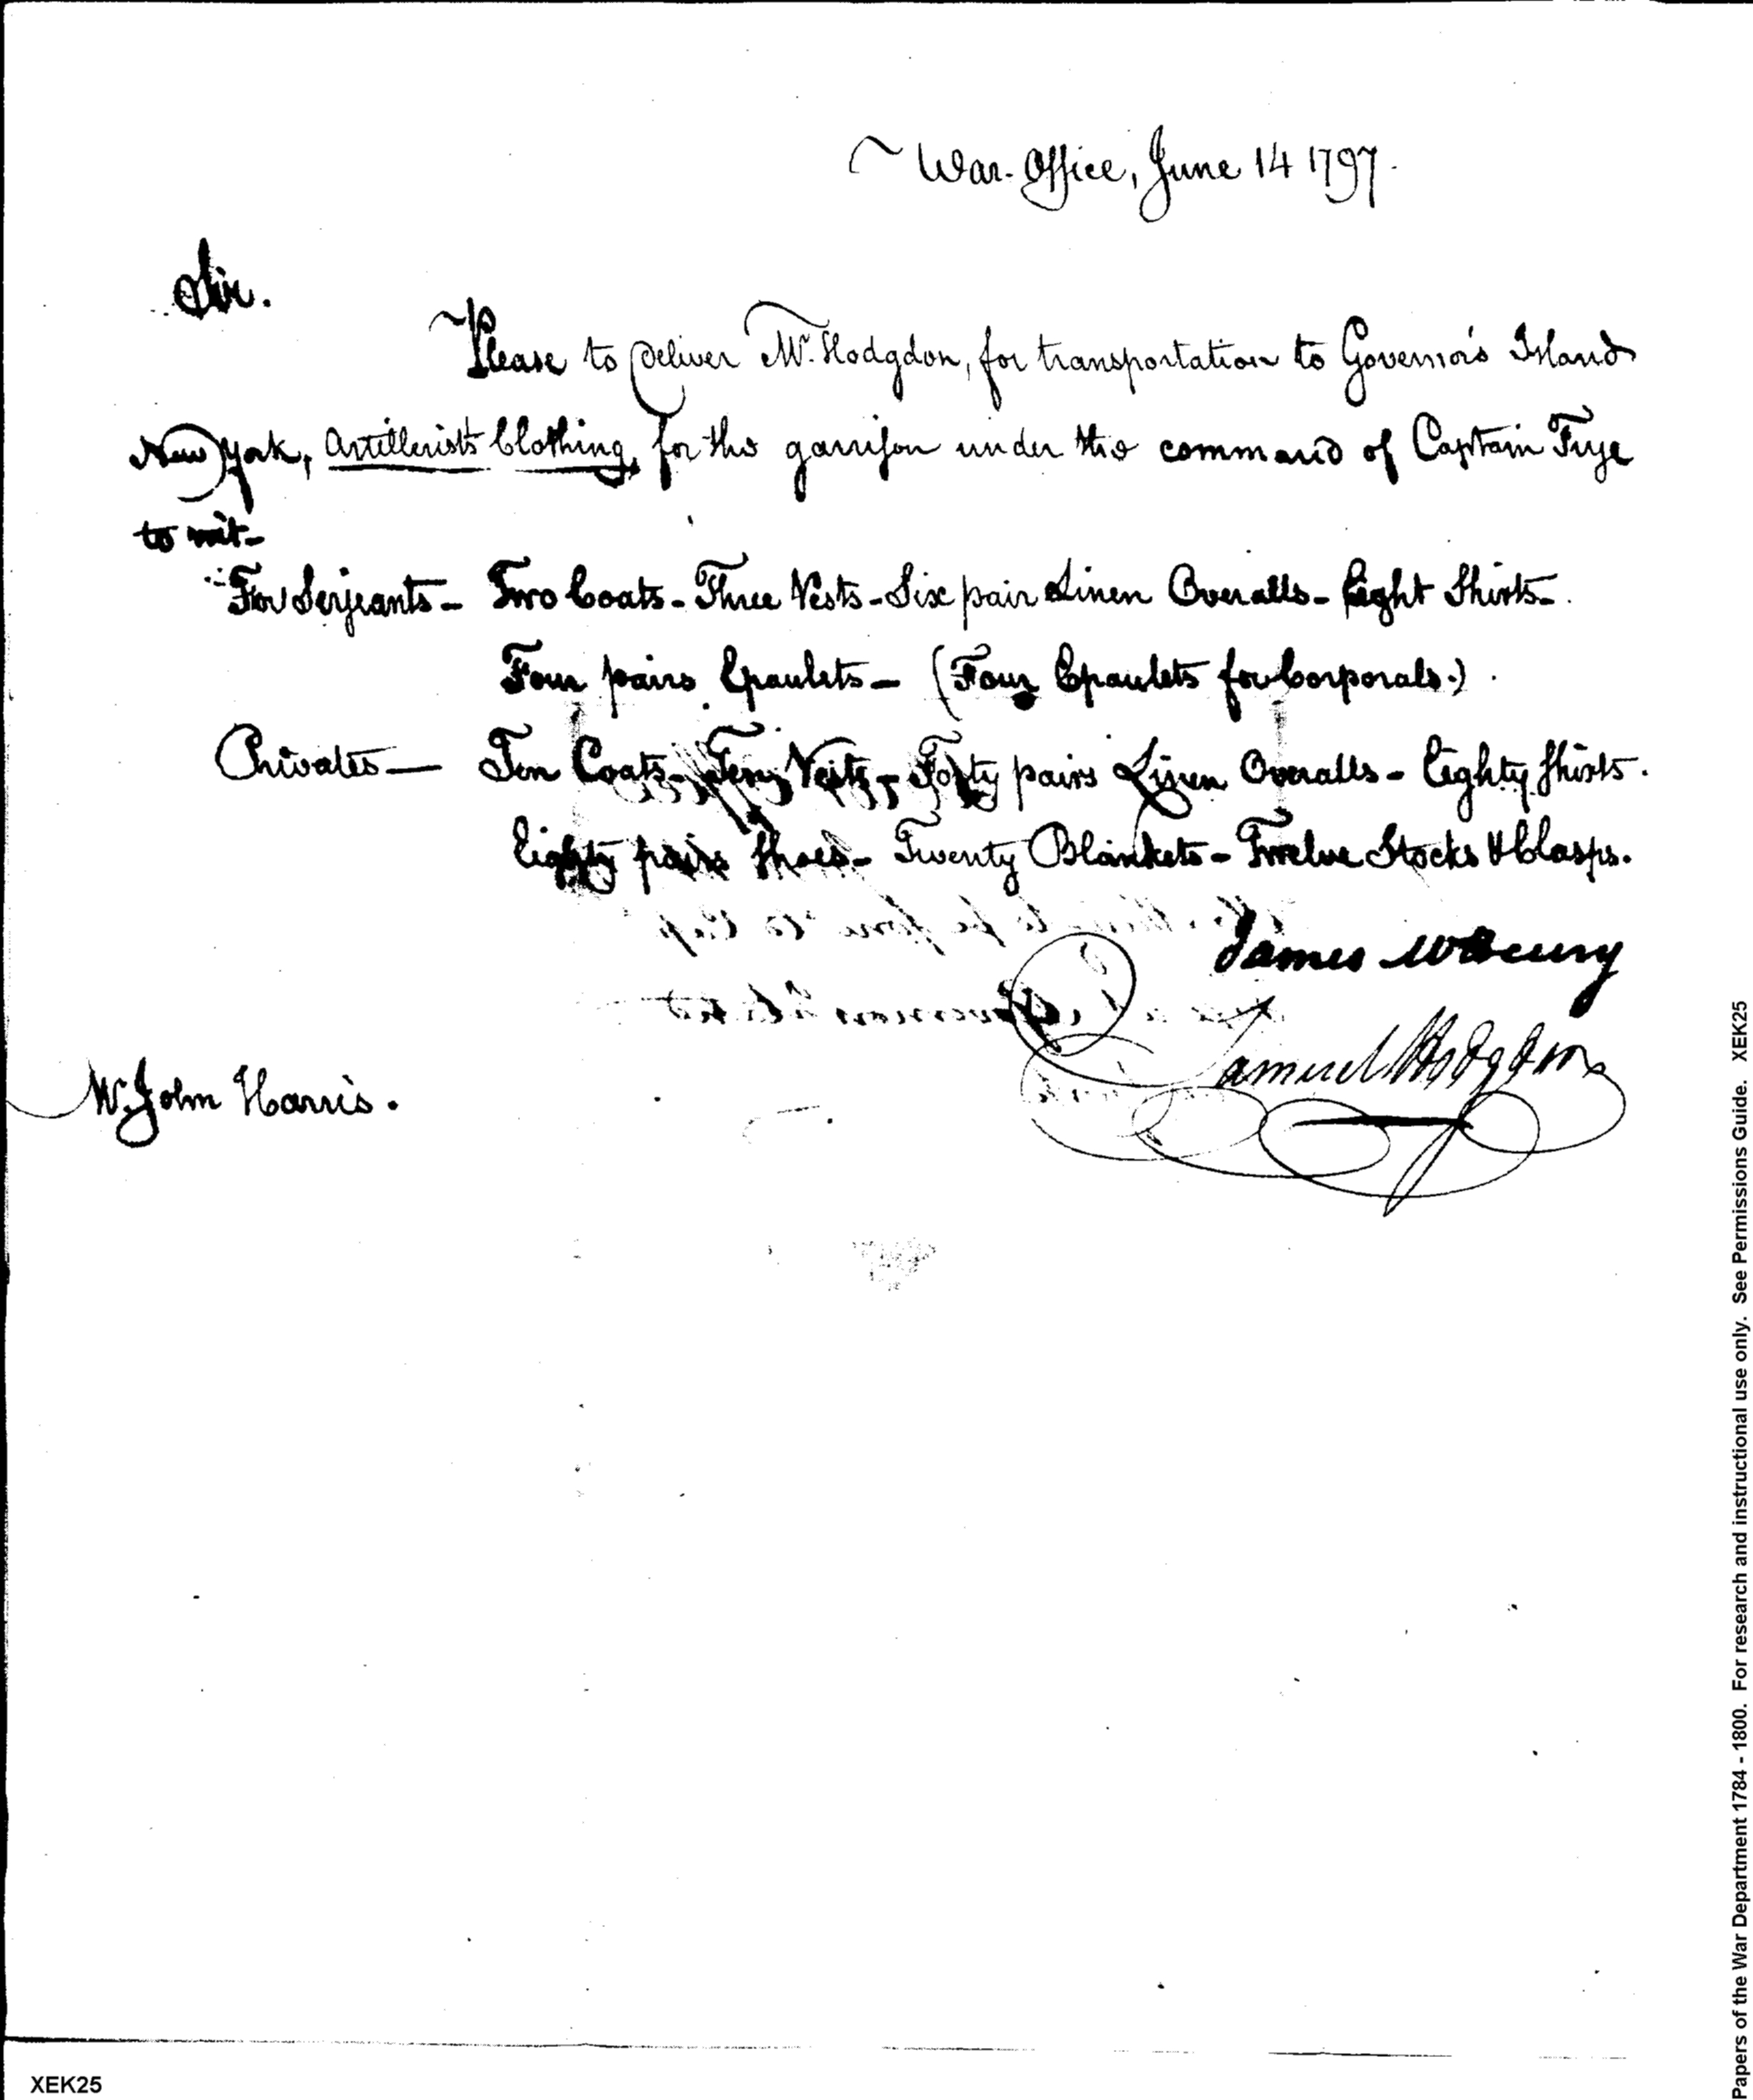 War-Office, June 14 1797.
Sir.
Please to Deliver Mr. Hodgdon, for transportation to Governor's Island
New York, Artillerists Clothing, for the garrison under the command of Captain Frye
to wit-
For Serjeants - Two Coats - Three Vests - Six pair Linen Overalls - Eight Shirts -.
Four pairs Epaulets - (Four Epaulets for Corporals.)
Privates - Ten Coats - Ten Vests - Forty pairs Linen Overalls - Eighty Shirts.
Eighty pairs Shoes - Twenty Blankets - Twelve Stocks & Clasps.
James McHenry
Samuel Hodgdon
Mr. John Harris.
XEK25
Papers of the War Department 1784 - 1800. For research and instructional use only. See Permissions Guide. XEK25